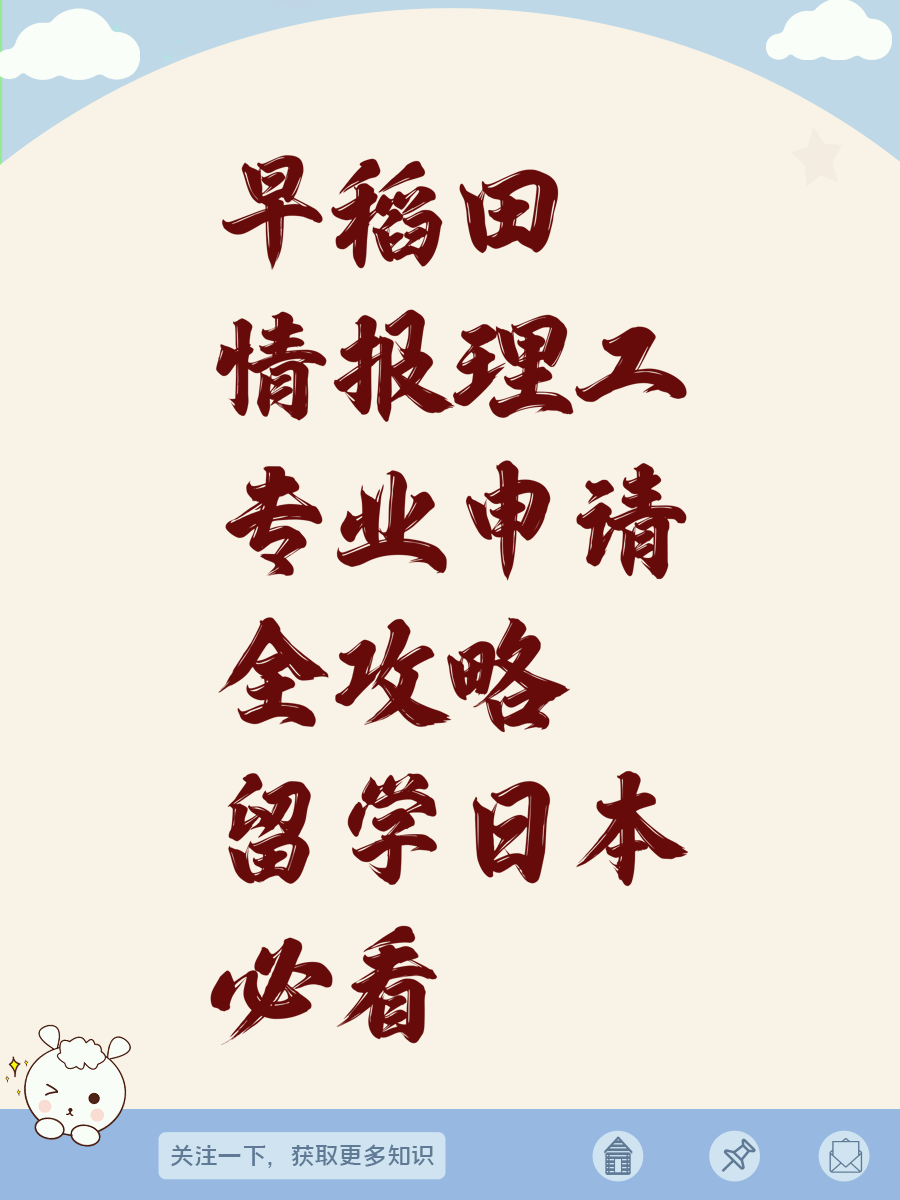 早稻田
情报理工
专业申请
全攻略
留学日本
必看
关注一下，获取更多知识